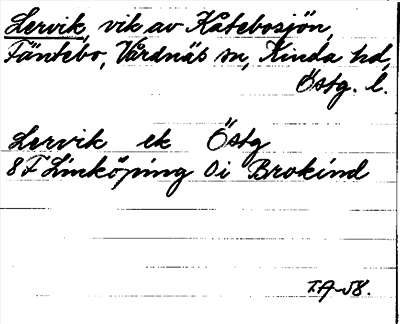 Lervik, vik av Katebosjön,
Fäntebo, Vårdnäs sn, Kinda hd,
Östg. l.
Lervik ek Östg
8F Linköping 0i Brokind
T.A-58.